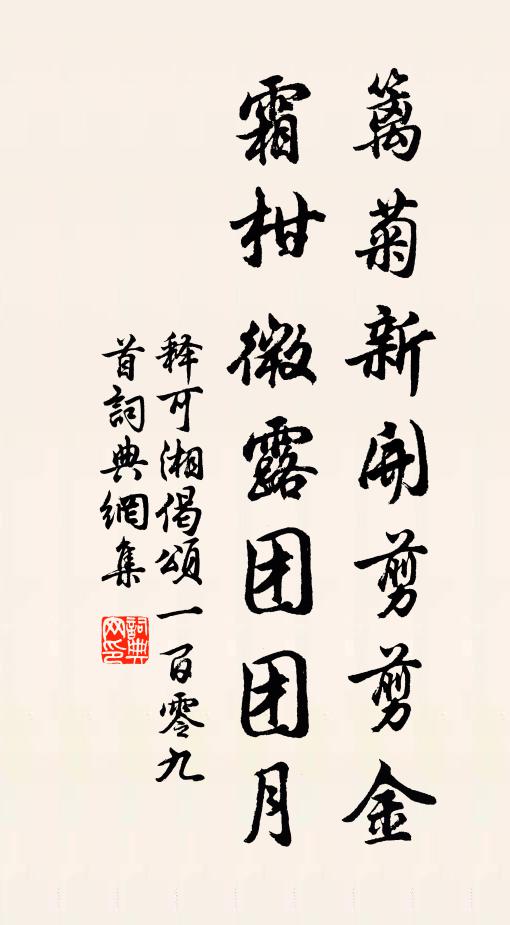 篱菊新開剪剪金
霜柑微露团团月
释可湘偈頌一百零九
首詞典網集
詞典网印